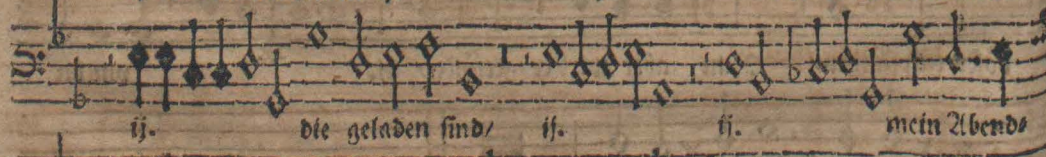 ij. die geladen sind/ ij. ij. mein Abend⸗